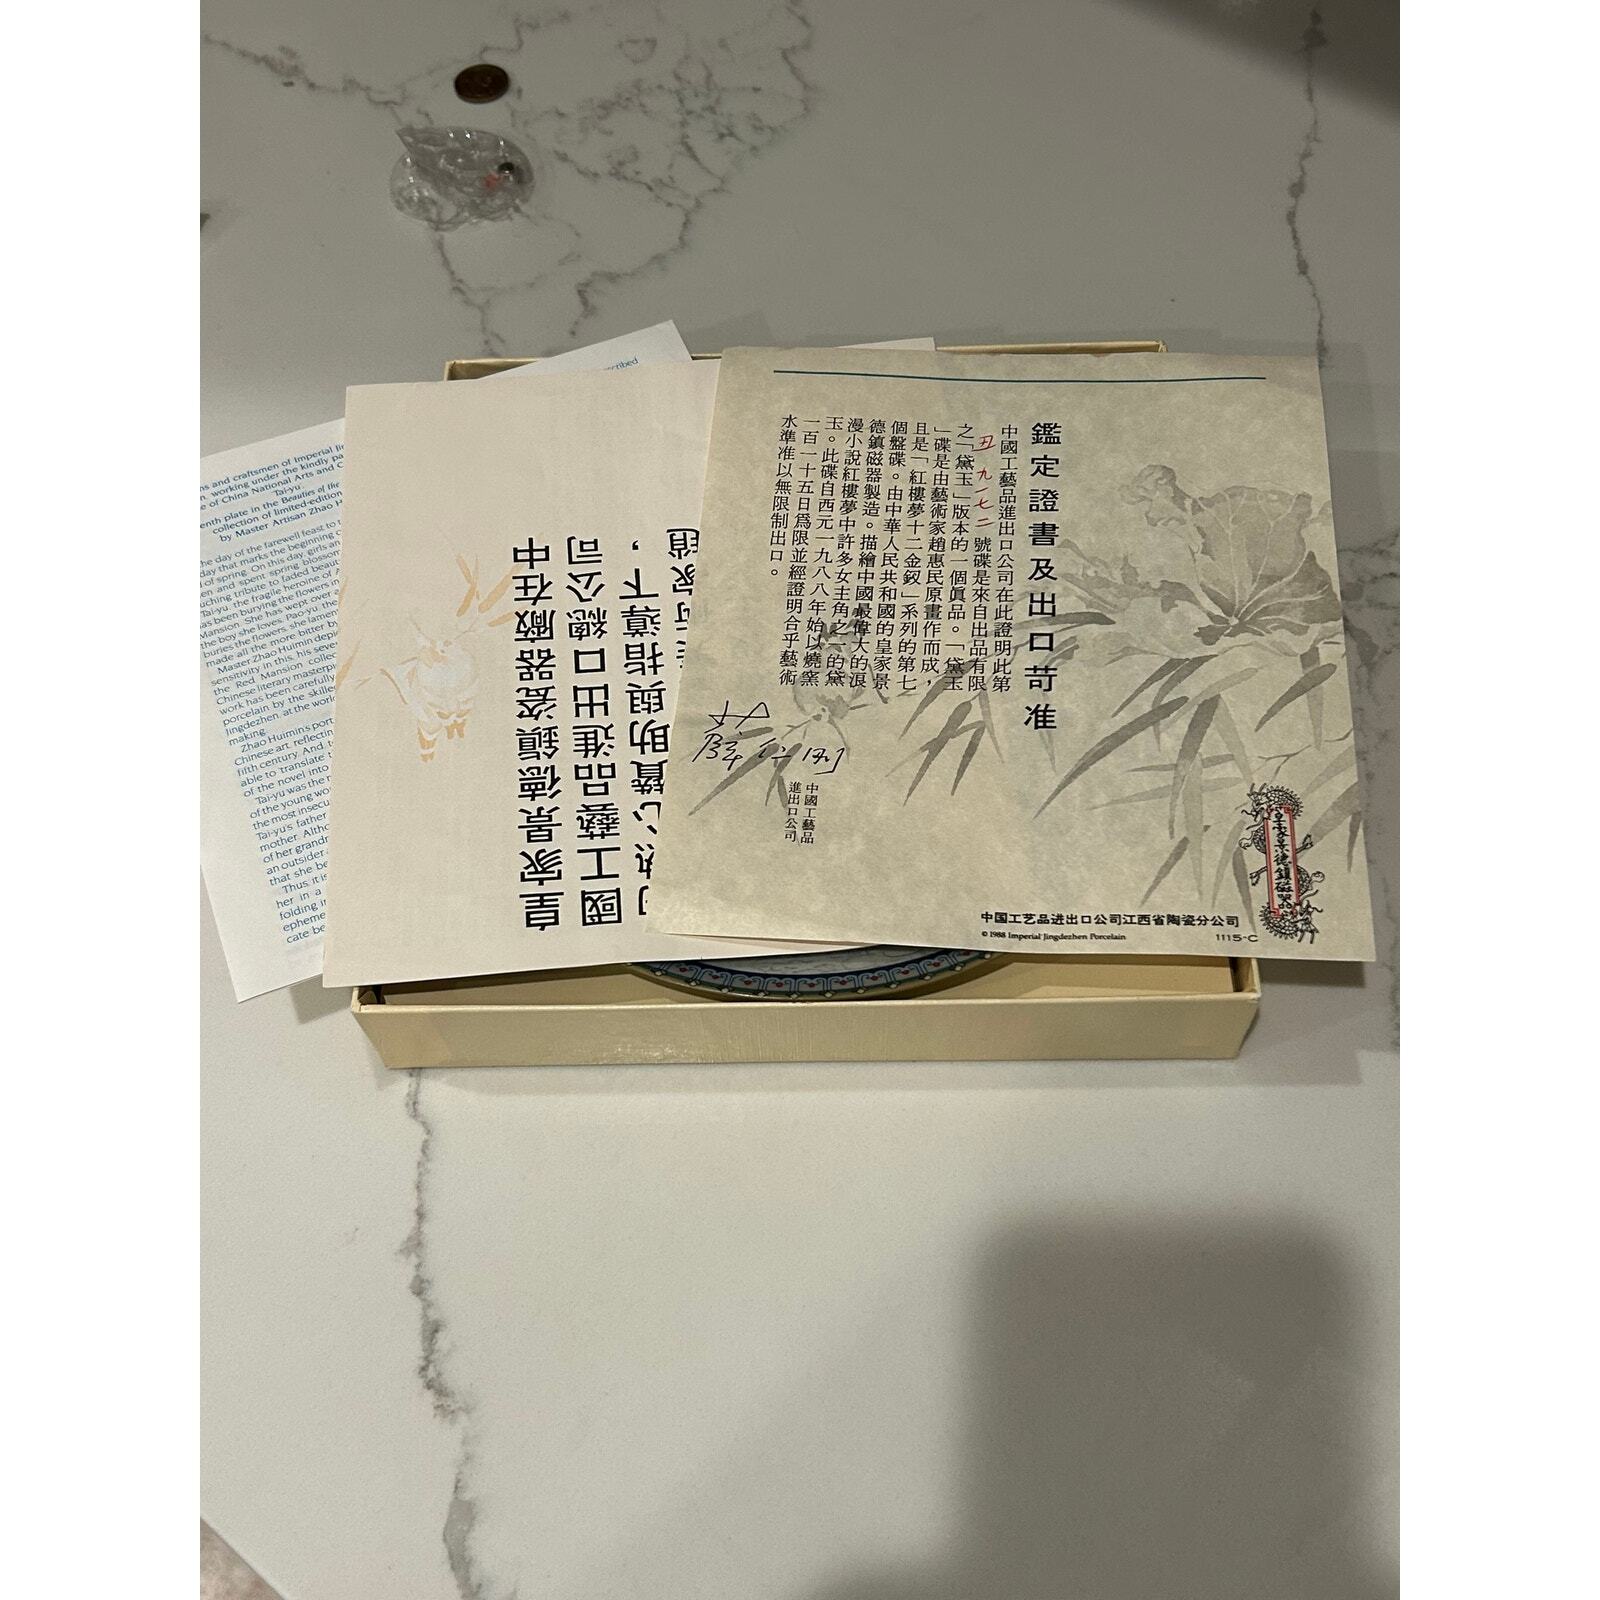 鑑定證書及出口苛准
中國工藝品進出口公司在此證明此第
丑九一七二號碟是來自出品有限
之「黛玉」版本的一個真品。「黛玉
」碟是由藝術家趙惠民原畫作而成，
且是「紅樓夢十二金釵」系列的第七
個盤碟。由中華人民共和國的皇家景
德鎮磁器製造。描繪中國最偉大的浪
漫小說紅樓夢中許多女主角之一的黛
玉。此碟自西元一九八八年始以燒窯
一百一十五日為限並經證明合乎藝術
水準准以無限制出口。
中國工藝品
進出口公司
皇家景德鎮磁器
中国工艺品进出口公司江西省陶瓷分公司
© 1988 Imperial Jingdezhen Porcelain
1115-C
皇家景德鎮瓷器廠在中
國工藝品進出口總公司
心贊助與指導下，
家趙
ns and craftsmen of Imperial Ji
working under the kindly pa
e of China National Arts and C
Tai-yu.
enth plate in the Beauties of the
collection of limited-edition
by Master Artisan Zhao H
the day of the farewell feast to t
day that marks the beginning o
of spring. On this day, girls an
en and spent spring blossom
uching tribute to faded beaut
Tai-yu, the fragile heroine of
has been burying the flowers in
Mansion. She has wept over a
the boy she loves, Pao-yu, the
buries the flowers, she lamen
made all the more bitter by
Master Zhao Huimin depi
sensitivity in this, his seve
the Red Mansion collec
Chinese literary masterpi
work has been carefully
porcelain by the skilled
Jingdezhen, at the world
making.
Zhao Huimin's port
Chinese art, reflecting
fifth century. And t
able to translate t
of the novel into
Tai-yu was the r
of the young wo
the most insecu
Tai-yu's father
mother. Altho
of her grandr
an outsider
that she be
Thus, it is
her in a
folding ir
epheme
cate be
scribed